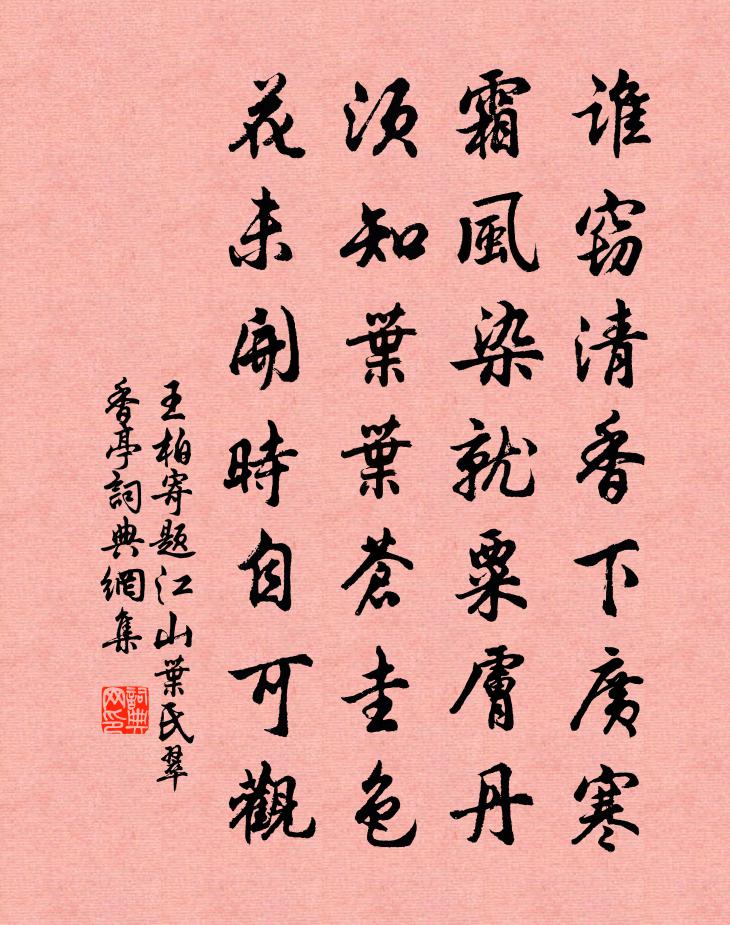 谁窃清香下廣寒
霜風染就粟膚丹
须知葉葉蒼圭色
花未開時自可觀
王柏寄题江山葉氏翠
香亭詞典網集
詞典网印